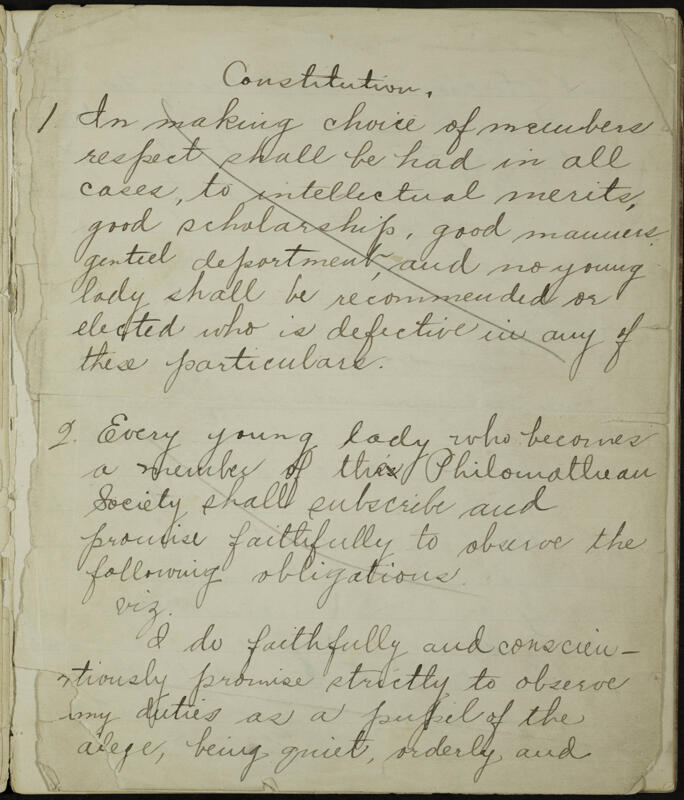 Constitution.
1 In making choice of members
respect shall be had in all
cases, to intellectual merits,
good scholarship, good manners
genteel deportment, and no young
lady shall be recommended or
elected who is defective in any of
these particulars.
2. Every young lady who becomes
a member of this Philomathean
Society shall subscribe and
promise faithfully to observe the
following obligations.
viz.
I do faithfully and conscien-
tiously promise strictly to observe
my duties as a pupil of the
being quiet, orderly and